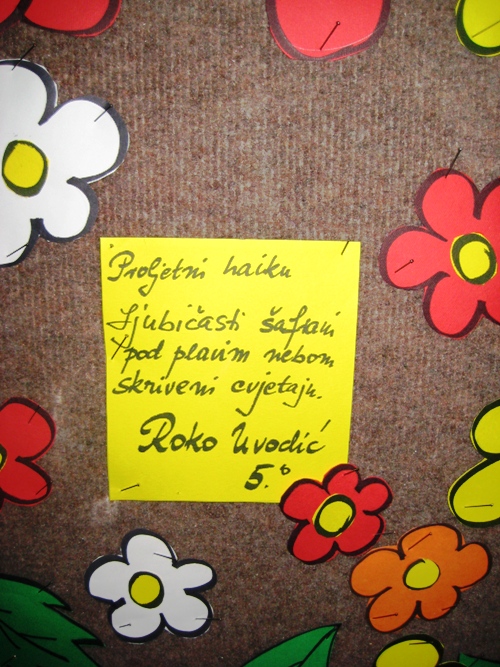 Proljetni haiku
Ljubičasti šafrani
pod plavim nebom
skriveni cvjetaju.
Roko Uvodić
5.b